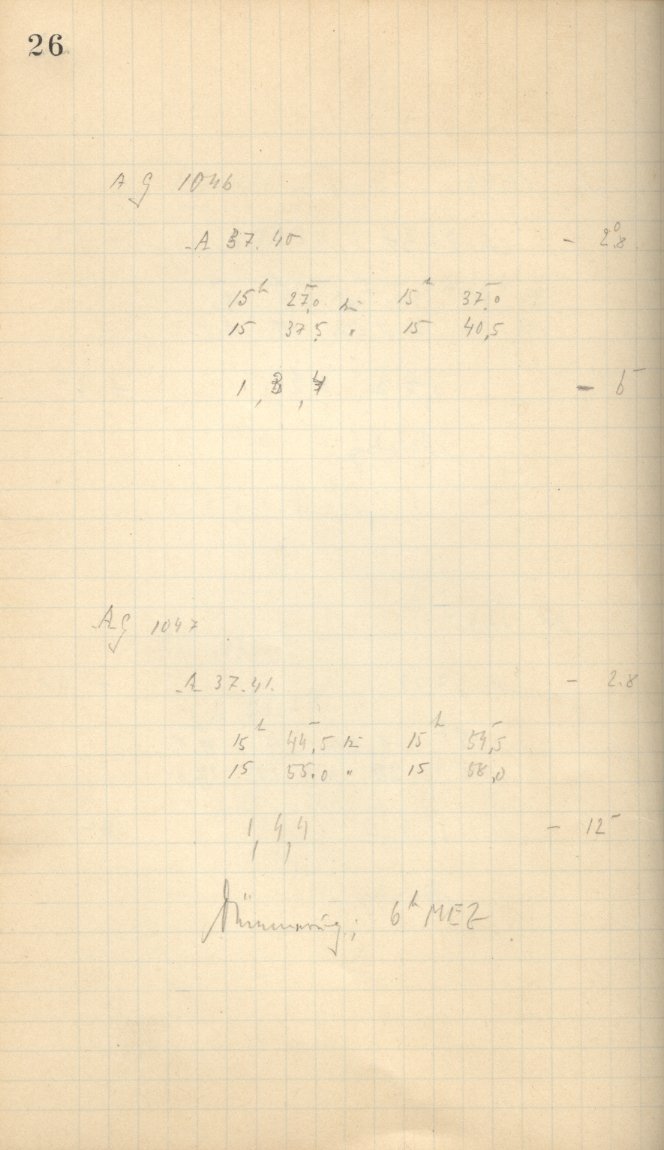 26
AG 1046
A 37.40 - 2°.8
15h 27,0 bis 15h 37,0
15 37,5 " 15 40,5
1, 3, 4 - 6
AG 1047
A 37.41. - 2.8
15h 44,5 bis 15h 54,5
15 55,0 " 15 58,0
1, 4, 4 - 12
Dämmerung; 6h MEZ